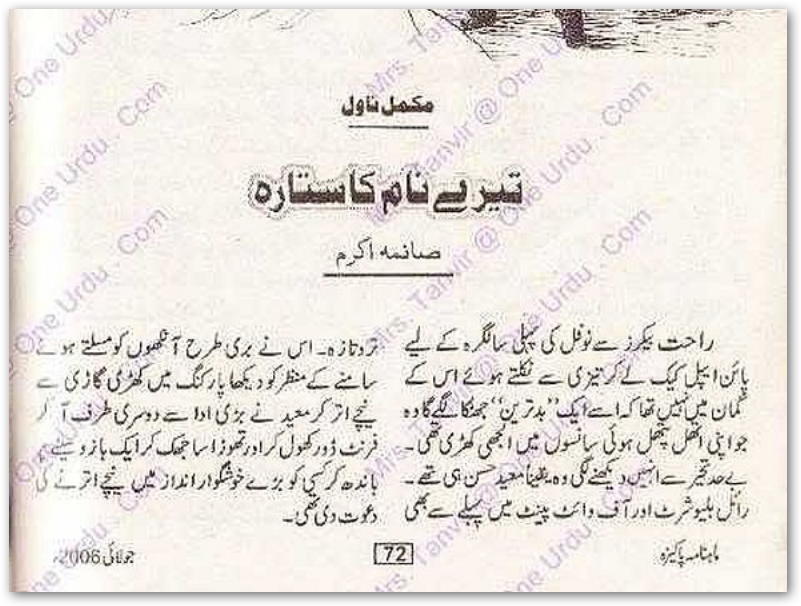 مکمل ناول
تیرے نام کا ستارہ
صائمہ اکرم
راحت بیکرز سے نوفل کی پہلی سالگرہ کے لیے
پائن ایپل کیک لے کر تیزی سے نکلتے ہوئے اس کے
گمان میں نہیں تھا کہ اسے ایک ’’بدترین‘‘ جھٹکا لگے گا وہ
جو اپنی اتھل پتھل ہوئی سانسوں میں الجھی کھڑی تھی۔
بے حد تحیر سے انہیں دیکھنے لگی وہ یقیناً معید حسن ہی تھے۔
رائل بلیو شرٹ اور آف وائٹ پینٹ میں پہلے سے بھی
تروتازہ۔ اس نے بری طرح آنکھوں کو مسلتے ہوئے
سامنے کے منظر کو دیکھا پارکنگ میں کھڑی گاڑی سے
نیچے اتر کر معید نے بڑی ادا سے دوسری طرف آ کر
فرنٹ ڈور کھول کر اور تھوڑا سا جھک کر ایک بازو سینے پر
باندھ کر کسی کو بڑے خوشگوار انداز میں نیچے اترنے کی
دعوت دی تھی۔
ماہنامہ پاکیزہ
72
جولائی 2006ء
Mrs. Tanvir @ One Urdu . Com